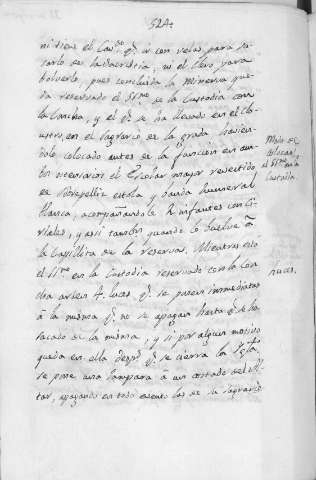 524.
ni tiene el Cav.do q.e ir con velas para sa-
carlo de la Sacristia, ni el Clero para
bolverlo, pues concluida la Minerva que-
da reservado el SS.mo en la Custodia con
la Concha, y el q.e se ha llevado en el
en el Sagrario de la grada havien-
dole colocado antes de la funcion en am-
bos el Escolar mayor revestido
de Sobrepelliz estola y vanda humeral
blanca, acompañandole 2 infantes con Ci-
riales, y assi tambn quando lo buelve â
la Capillita de la reserva. Mientras está
el SS.mo en la Custodia reservado con la Con-
cha arden 4. luces, q.e se ponen immediatas
â la misma q.e no se apagan hasta q.e se ha
sacado de la misma, y si por algun motivo
queda en ella despues q.e se cierra la Igla.
se pone una lampara â un costado del Al-
tar, apagando en todo evento las de su Sagrario
Modo de
colocar
el SS.mo en la
Custodia.
luces.